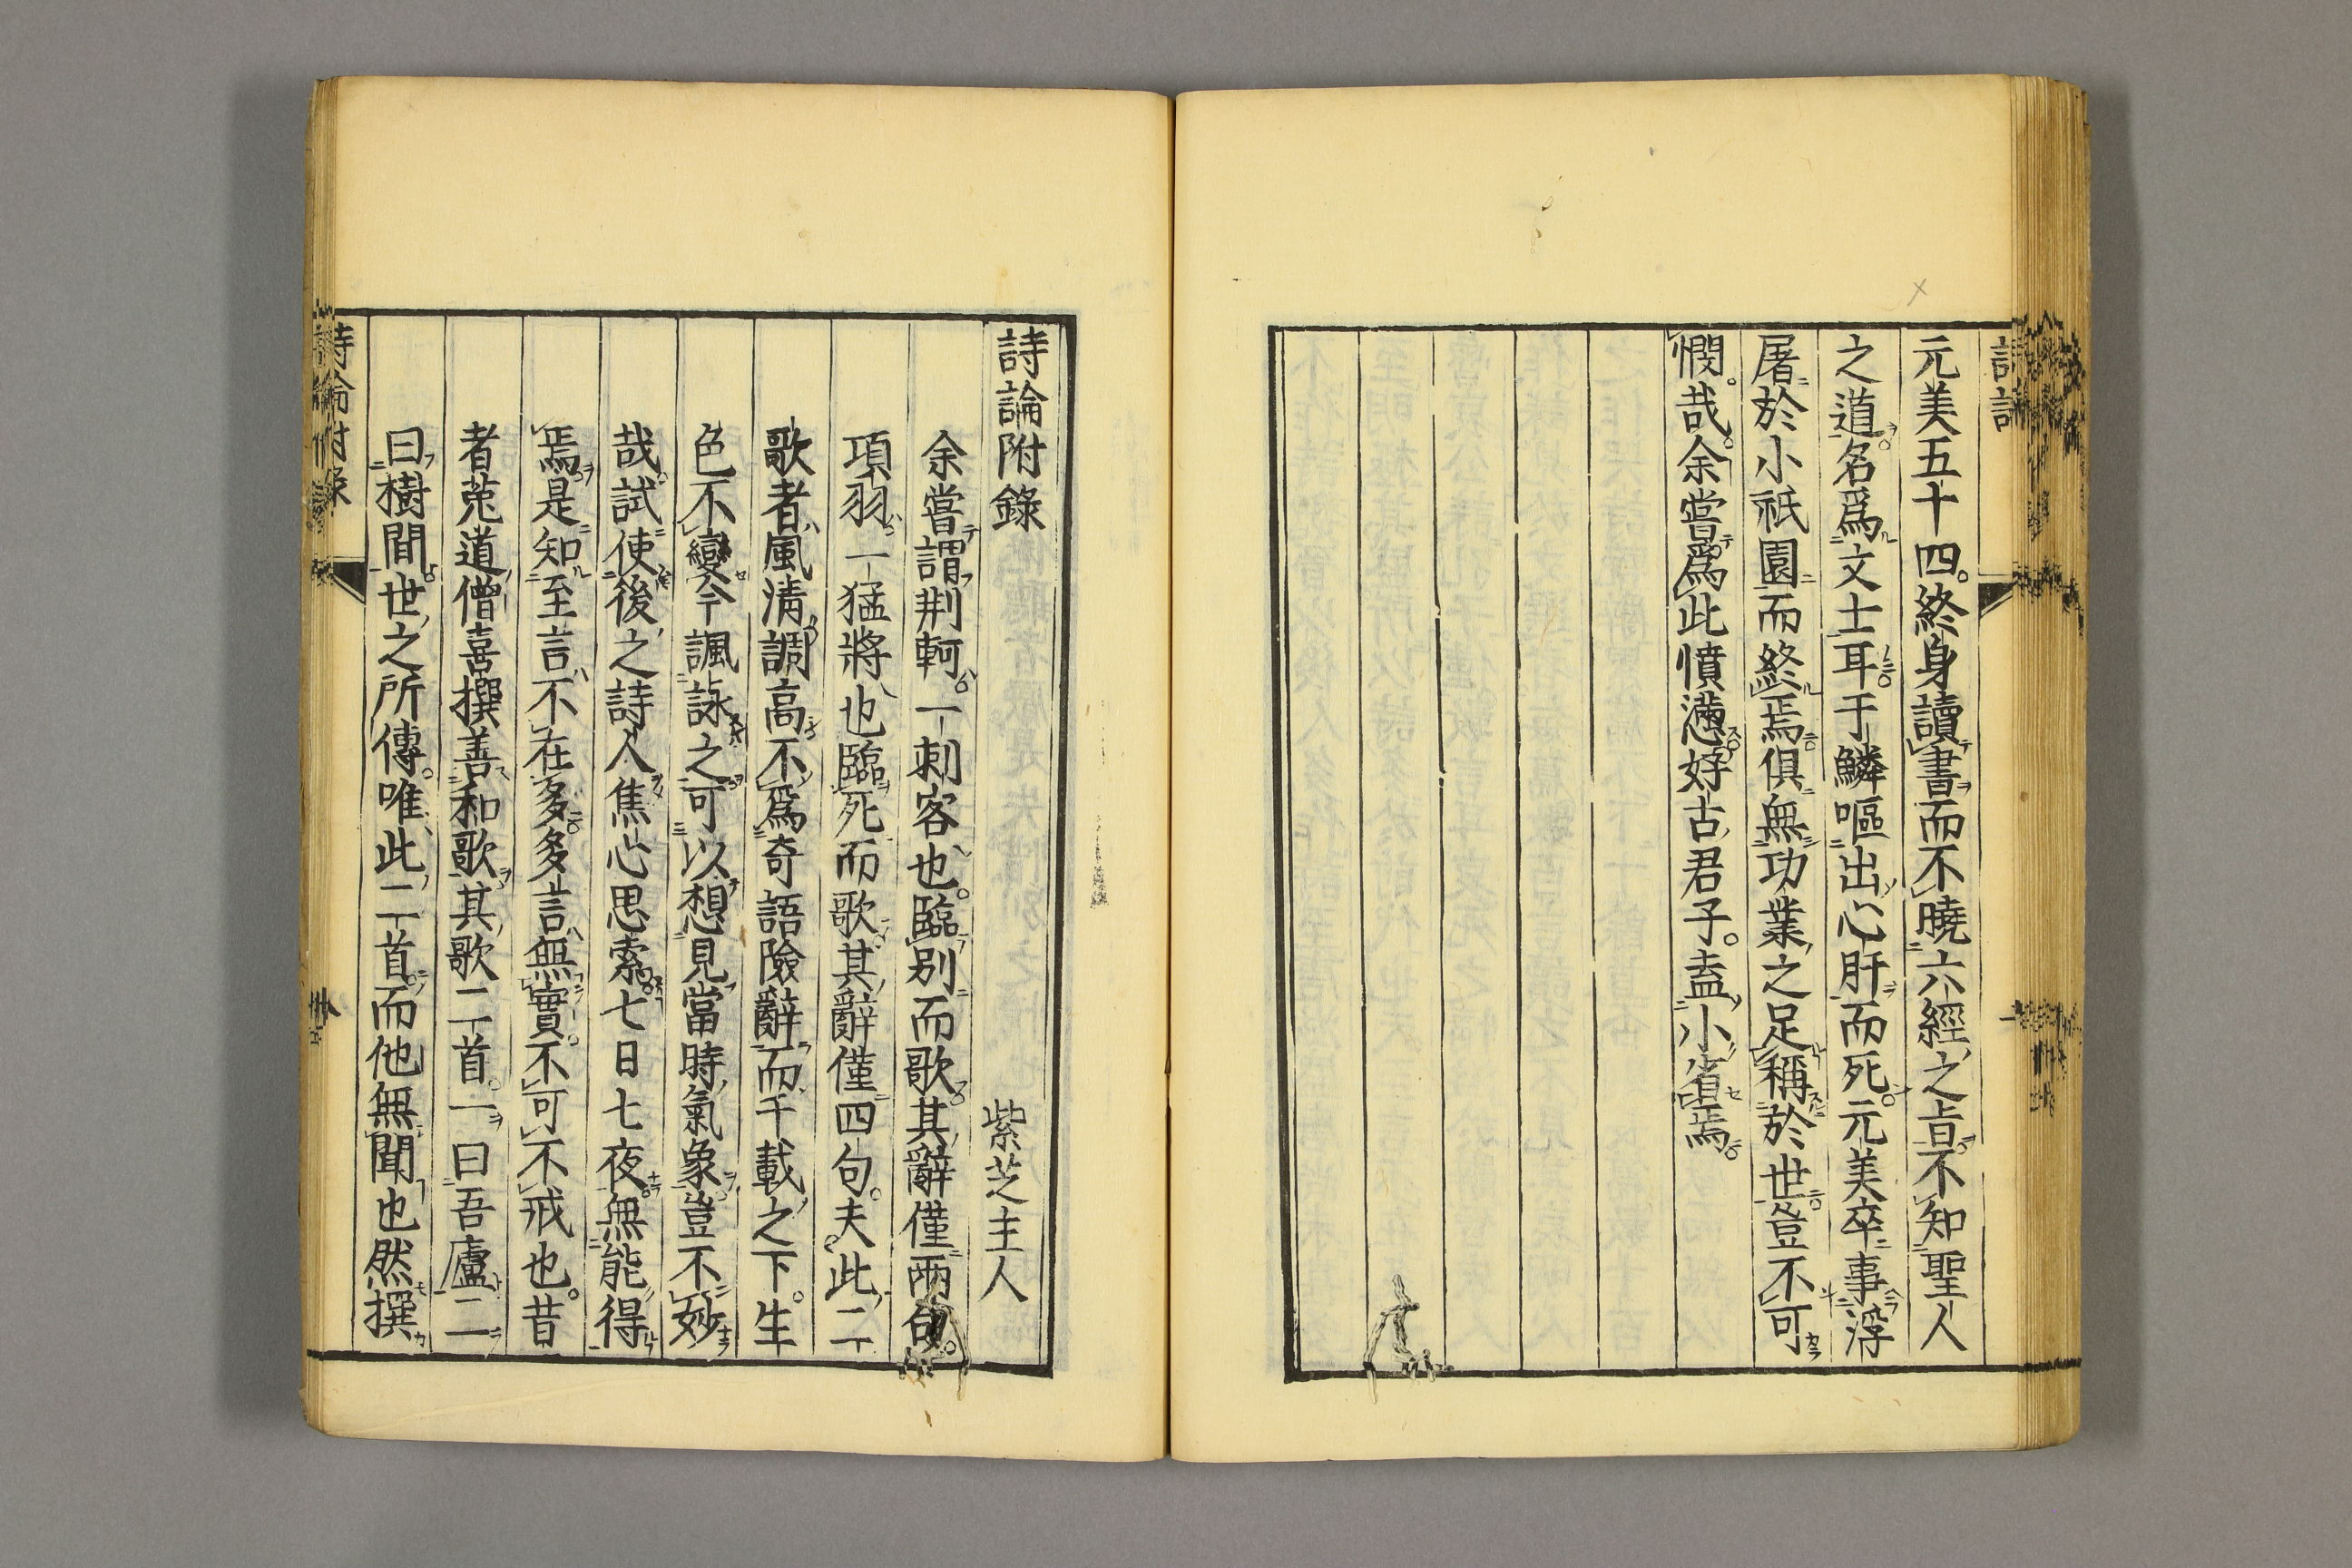 元美五十四。終身讀書而不曉六經之旨。不知聖人
之道。名爲文士耳。于鱗嘔出心肝而死。元美卒事浮
屠於小祇園而終焉。俱無功業之足稱於世。豈不可
憫哉。余嘗爲此憤懣。好古君子。盍小省焉。
詩論附錄
紫芝主人
余嘗謂荆軻。一刺客也。臨別而歌。其辭僅兩句。
項羽。一猛將也。臨死而歌。其辭僅四句。夫此二
歌者。風淸調高。不爲奇語險辭。而千載之下。生
色不變。今諷詠之。可以想見當時氣象。豈不妙
哉。試使後之詩人焦心思索。七日七夜。無能得
焉。是知至言不在多。多言無實。不可不戒也。昔
者菟道僧喜撰善和歌。其歌二首。一曰吾廬。二
曰樹間。世之所傳。唯此二首。而他無聞也。然撰
詩論附錄